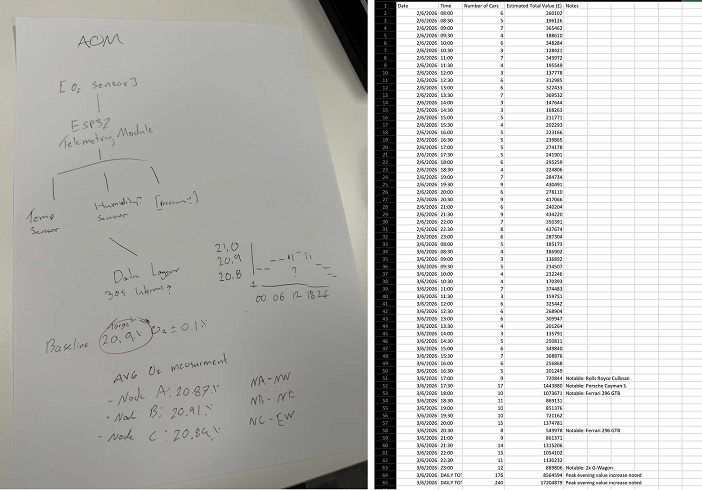 AOM
[O₂ sensor]
ESP32
Telemetry Module
Temp
Sensor
Humidity
Sensor
Data Logger
30s
21,0
20.9
20.8
?
00 06 12 18 24
Baseline
Target
20.9% O₂ ± 0.1%
AVG O₂ measurment
- Node A: 20.87%
- Node B: 20.91%
- Node C: 20.89%
NA - NW
NB - NE
NC - EW
Date Time Number of Cars Estimated Total Value (£) Notes
2/6/2026 08:00 6 260102
2/6/2026 08:30 5 196126
2/6/2026 09:00 7 365462
2/6/2026 09:30 4 188610
2/6/2026 10:00 6 348284
2/6/2026 10:30 3 128421
2/6/2026 11:00 7 349972
2/6/2026 11:30 4 195549
2/6/2026 12:00 3 137778
2/6/2026 12:30 6 312985
2/6/2026 13:00 6 322433
2/6/2026 13:30 7 369532
2/6/2026 14:00 3 147644
2/6/2026 14:30 3 168263
2/6/2026 15:00 5 211771
2/6/2026 15:30 4 202293
2/6/2026 16:00 5 223166
2/6/2026 16:30 5 239865
2/6/2026 17:00 5 274178
2/6/2026 17:30 5 241901
2/6/2026 18:00 6 295259
2/6/2026 18:30 4 224806
2/6/2026 19:00 7 284734
2/6/2026 19:30 9 430491
2/6/2026 20:00 6 278110
2/6/2026 20:30 9 417066
2/6/2026 21:00 6 240204
2/6/2026 21:30 9 434220
2/6/2026 22:00 7 350391
2/6/2026 22:30 8 437674
2/6/2026 23:00 6 287304
3/6/2026 08:00 5 185173
3/6/2026 08:30 4 186902
3/6/2026 09:00 3 136892
3/6/2026 09:30 5 234507
3/6/2026 10:00 4 232246
3/6/2026 10:30 4 170393
3/6/2026 11:00 7 374483
3/6/2026 11:30 3 159751
3/6/2026 12:00 6 325442
3/6/2026 12:30 6 268904
3/6/2026 13:00 6 309947
3/6/2026 13:30 4 201264
3/6/2026 14:00 3 135791
3/6/2026 14:30 5 250811
3/6/2026 15:00 6 349840
3/6/2026 15:30 7 368876
3/6/2026 16:00 6 256868
3/6/2026 16:30 5 201249
3/6/2026 17:00 9 720844 Notable: Rolls Royce Cullinan
3/6/2026 17:30 17 1443880 Notable: Porsche Cayman S
3/6/2026 18:00 10 1073671 Notable: Ferrari 296 GTB
3/6/2026 18:30 11 869131
3/6/2026 19:00 10 851376
3/6/2026 19:30 10 721162
3/6/2026 20:00 15 1374781
3/6/2026 20:30 8 549978 Notable: Ferrari 296 GTB
3/6/2026 21:00 9 861371
3/6/2026 21:30 14 1315206
3/6/2026 22:00 15 1054102
3/6/2026 22:30 11 1130232
3/6/2026 23:00 12 889806 Notable: 2x G-Wagon
3/6/2026 DAILY TOT 176 8564594 Peak evening value increase noted
3/6/2026 DAILY TOT 240 17204879 Peak evening value increase noted